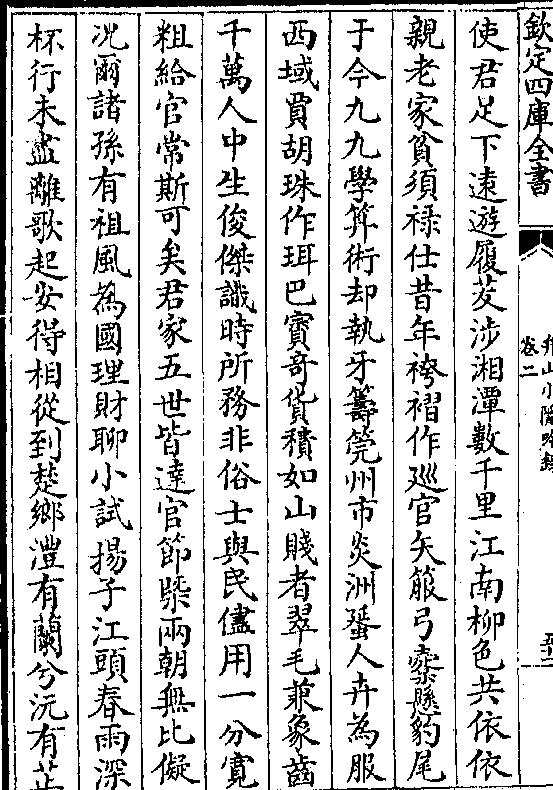 欽定四庫全書
卷二
使君足下遠遊履芨涉湘潭數千里江南柳色共依依
親老家貧須祿仕昔年袴褶作廵官矢箙弓櫜懸豹尾
于今九九學筭術却執牙籌筦州市炎洲蜑人卉為服
西域賈胡珠作珥巴賨奇貨積如山賤者翠毛兼象齒
千萬人中生俊傑識時所務非俗士與民儘用一分寛
粗給官常斯可矣君家五世皆達官節槩兩朝無比儗
况爾諸孫有祖風為國理財聊小試揚子江頭春雨深
杯行未盡離歌起安得相從到楚鄉澧有蘭兮沅有芷